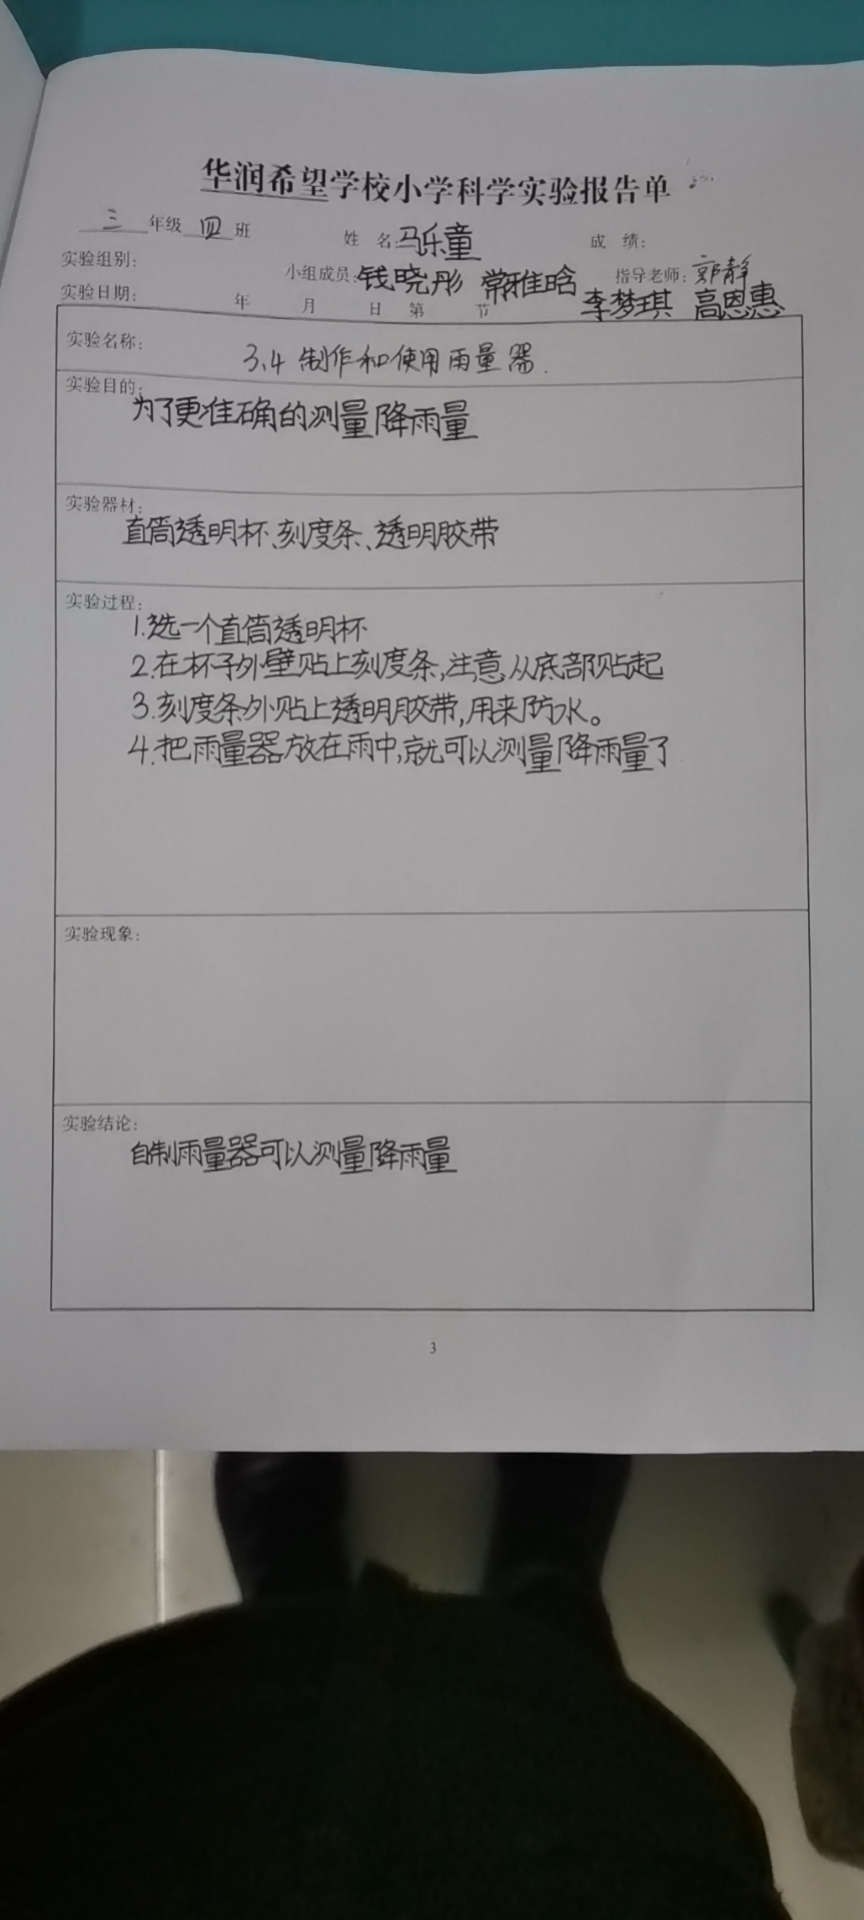 华润希望学校小学科学实验报告单
三 年级 四 班 姓 名:马乐童 成 绩:
实验组别: 小组成员:钱晓彤 常雅晗 指导老师:郭静
李梦琪 高恩惠
实验日期: 年 月 日 第 节
实验名称: 3.4 制作和使用雨量器.
实验目的:
为了更准确的测量降雨量
实验器材:
直筒透明杯、刻度条、透明胶带
实验过程:
1.选一个直筒透明杯
2.在杯子外壁贴上刻度条,注意从底部贴起
3.刻度条外贴上透明胶带,用来防水。
4.把雨量器放在雨中,就可以测量降雨量了
实验现象:
实验结论:
自制雨量器可以测量降雨量
3